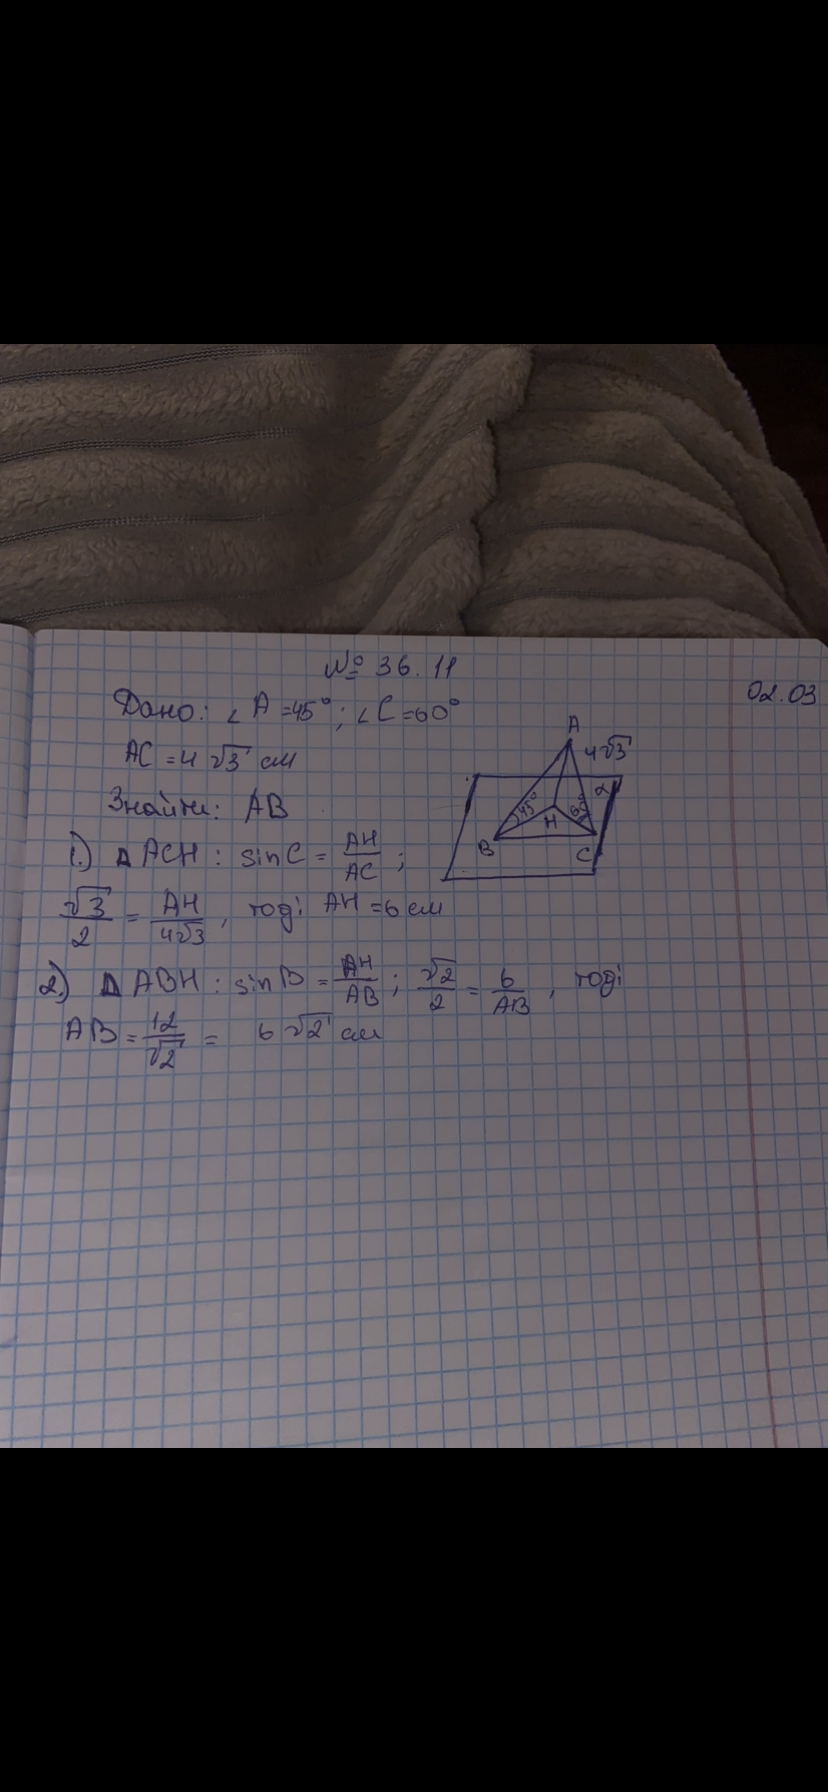 № 36.11
02.03
Дано: ∠A=45°; ∠C=60°
AC=4√3 см
Знайти: AB
A
4√3
α
45°
60°
H
B
C
1.) ΔACH: sinC = AH/AC;
√3/2 = AH/4√3, тоді AH=6см
2.) ΔABH: sinB = AH/AB; √2/2 = 6/AB, тоді
AB = 12/√2 = 6√2 см